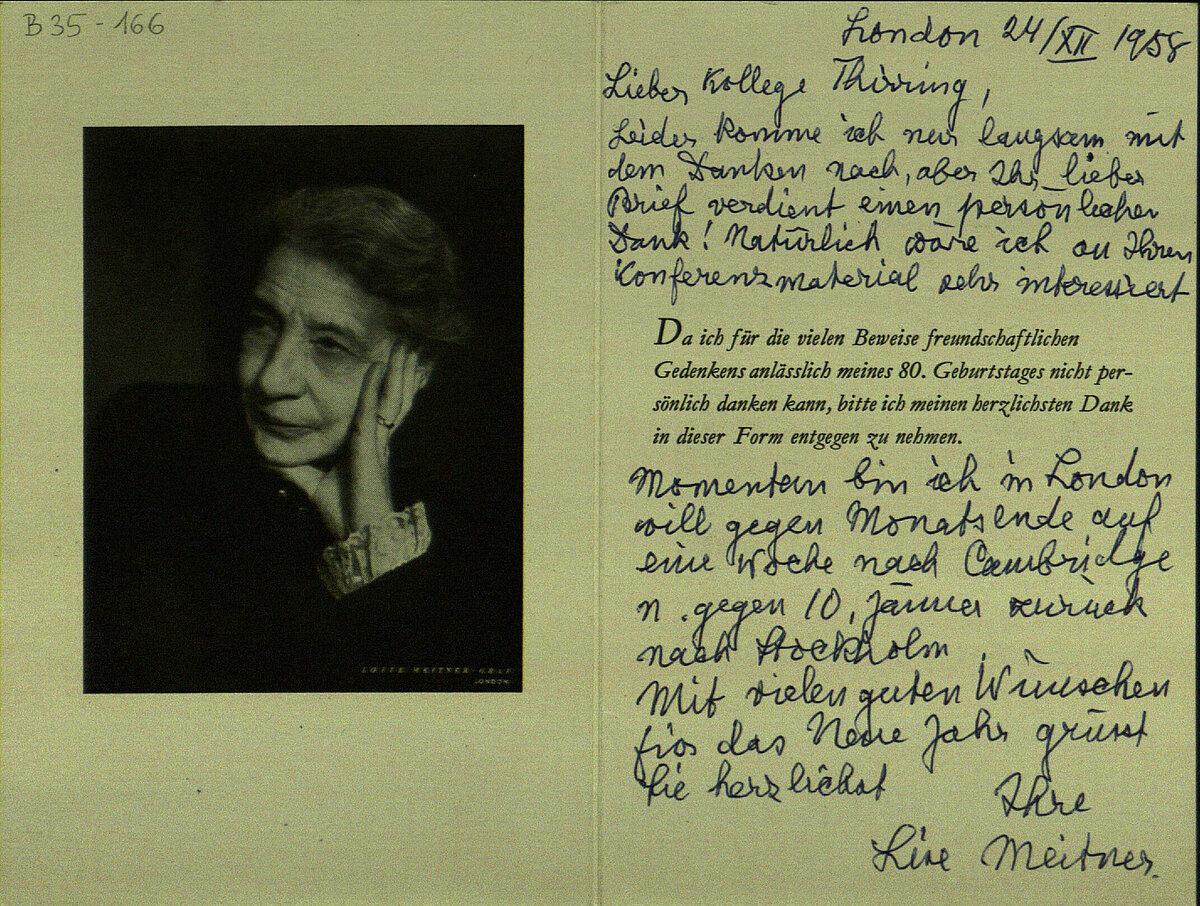 B35-166
LOTTE MEITNER-GRAF
LONDON
London 24/XII 1958
Lieber Kollege Thirring,
Leider komme ich nur langsam mit
dem Danken nach, aber Ihr lieber
Brief verdient einen persönlichen
Dank! Natürlich wäre ich an Ihren
Konferenzmaterial sehr interessiert
Da ich für die vielen Beweise freundschaftlichen
Gedenkens anlässlich meines 80. Geburtstages nicht per-
sönlich danken kann, bitte ich meinen herzlichsten Dank
in dieser Form entgegen zu nehmen.
Momentan bin ich in London
will gegen Monatsende auf
eine Woche nach Cambridge
u. gegen 10. Jänner zurück
nach Stockholm.
Mit vielen guten Wünschen
für das Neue Jahr grüsst
Sie herzlichst
Ihre
Lise Meitner.